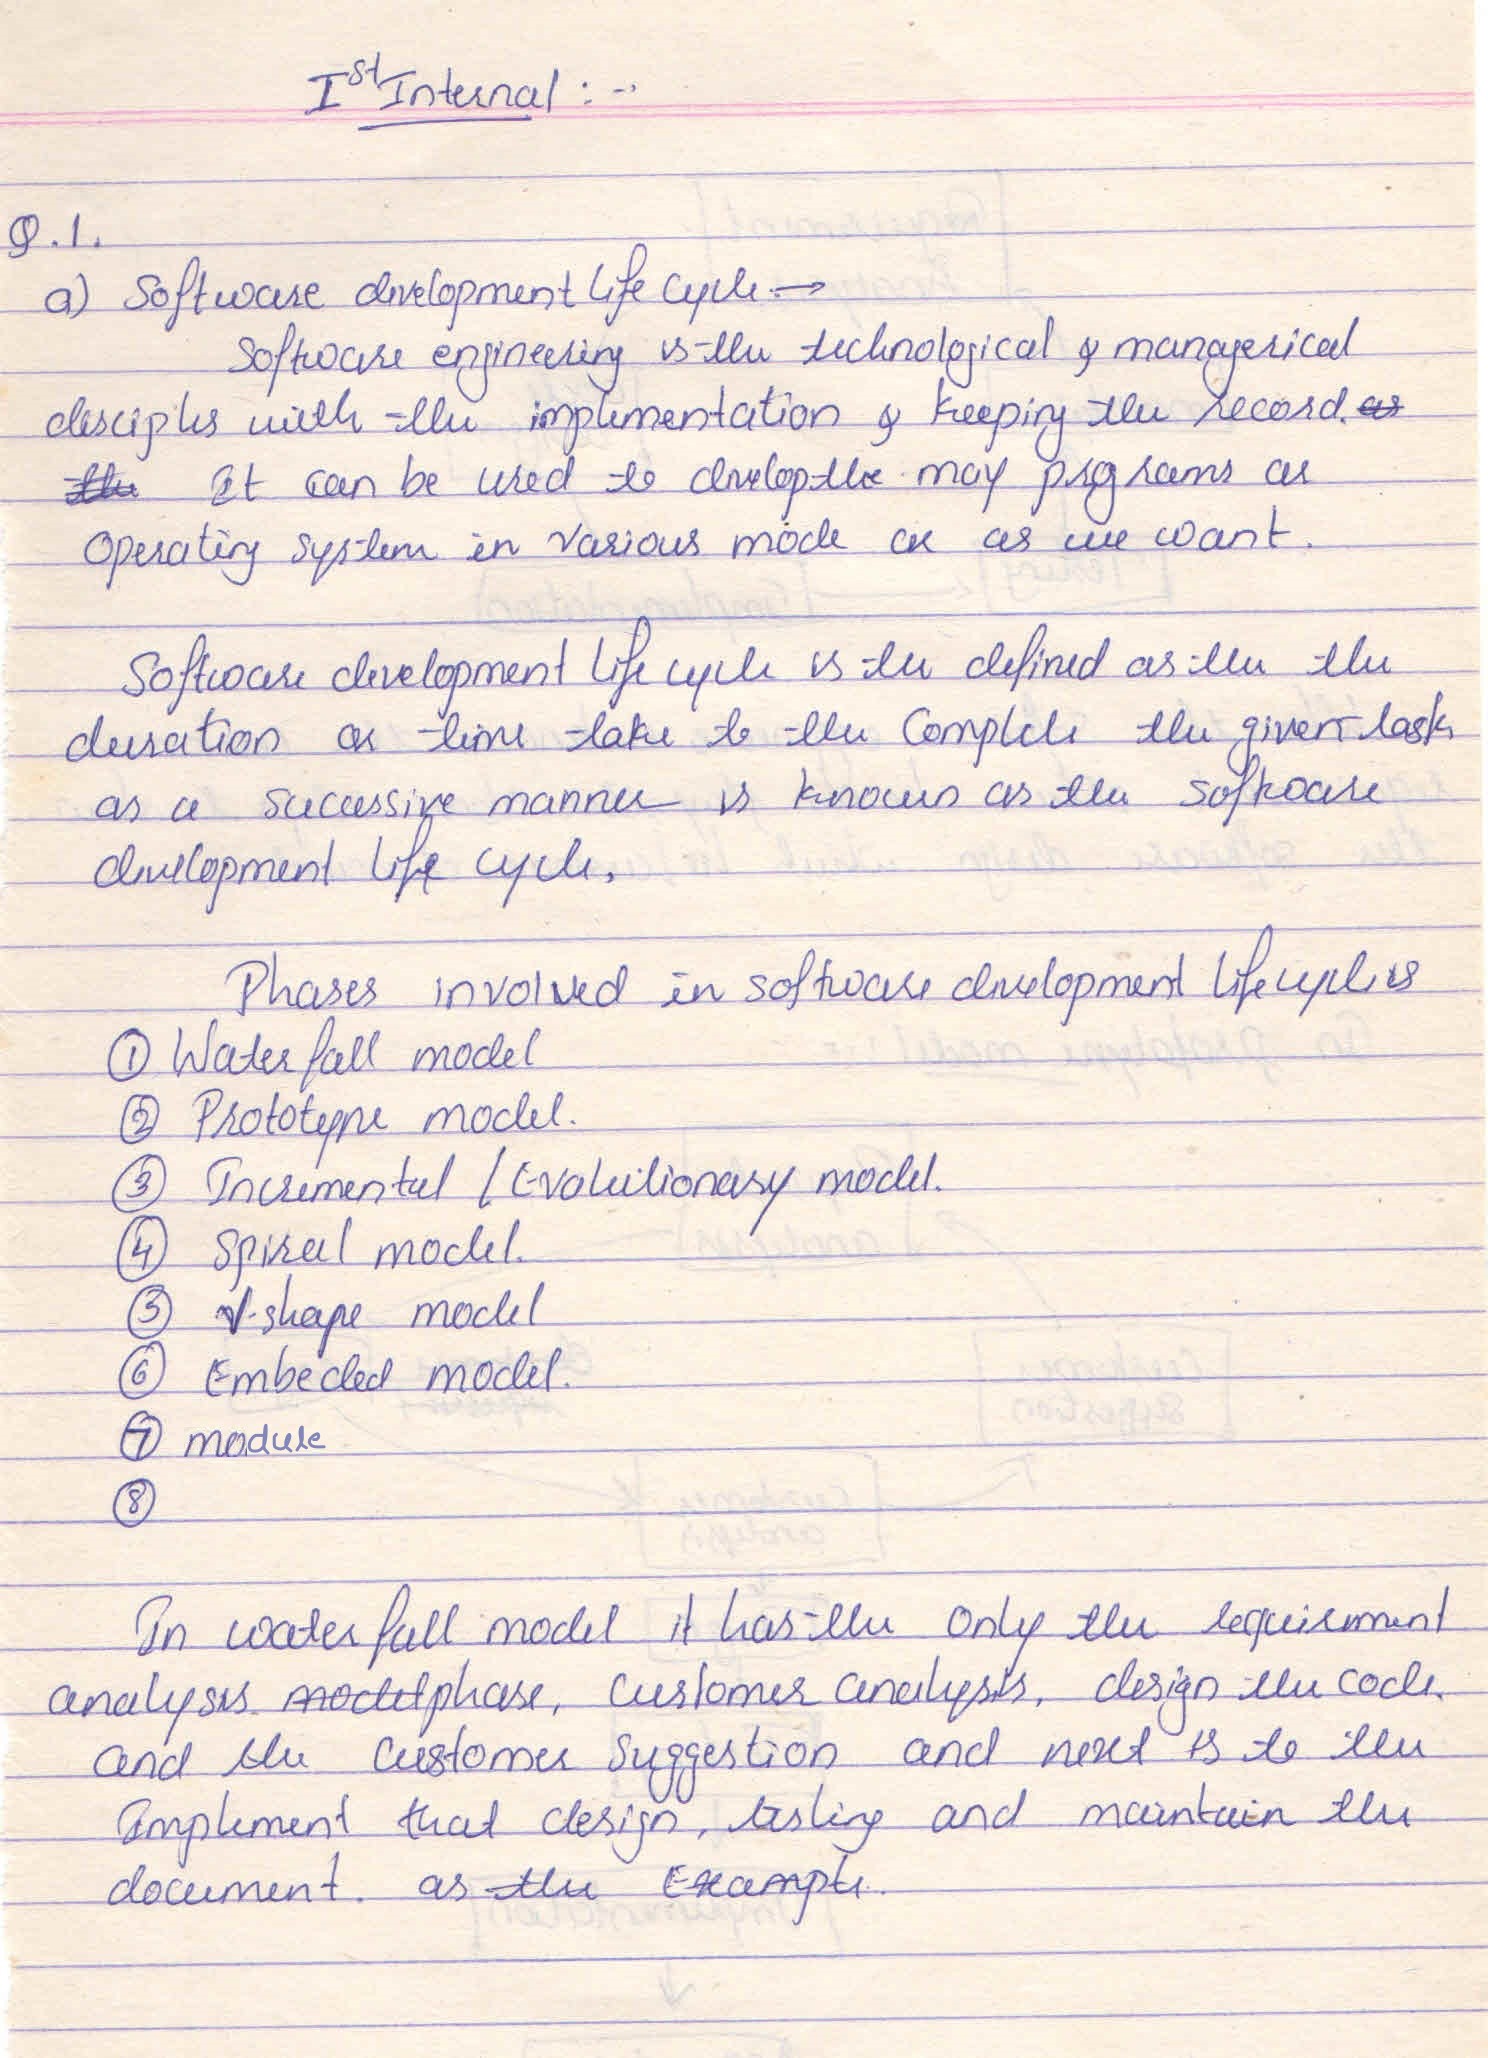 Ist Internal :-
Q.1.
a) Software development life cycle →
Software engineering is the technological & managerical
disciples with the implementation & keeping the record. as
the It can be used to develop the may programs or
operating system in various mode or as we want.
Software development life cycle is the defined as the the
duration or time take to the complete the given task
as a successive manner is known as the software
development life cycle.
Phases involved in software development life cycle is
① Waterfall model
② Prototype model.
③ Incremental / Evolutionary model.
④ Spiral model.
⑤ V-shape model
⑥ Embeded model.
⑦ module
⑧
In waterfall model it has the only the requirement
analysis model phase, customer analysis, design the code.
and the customer suggestion and next is to the
implement that design, testing and maintain the
document. as the Example.